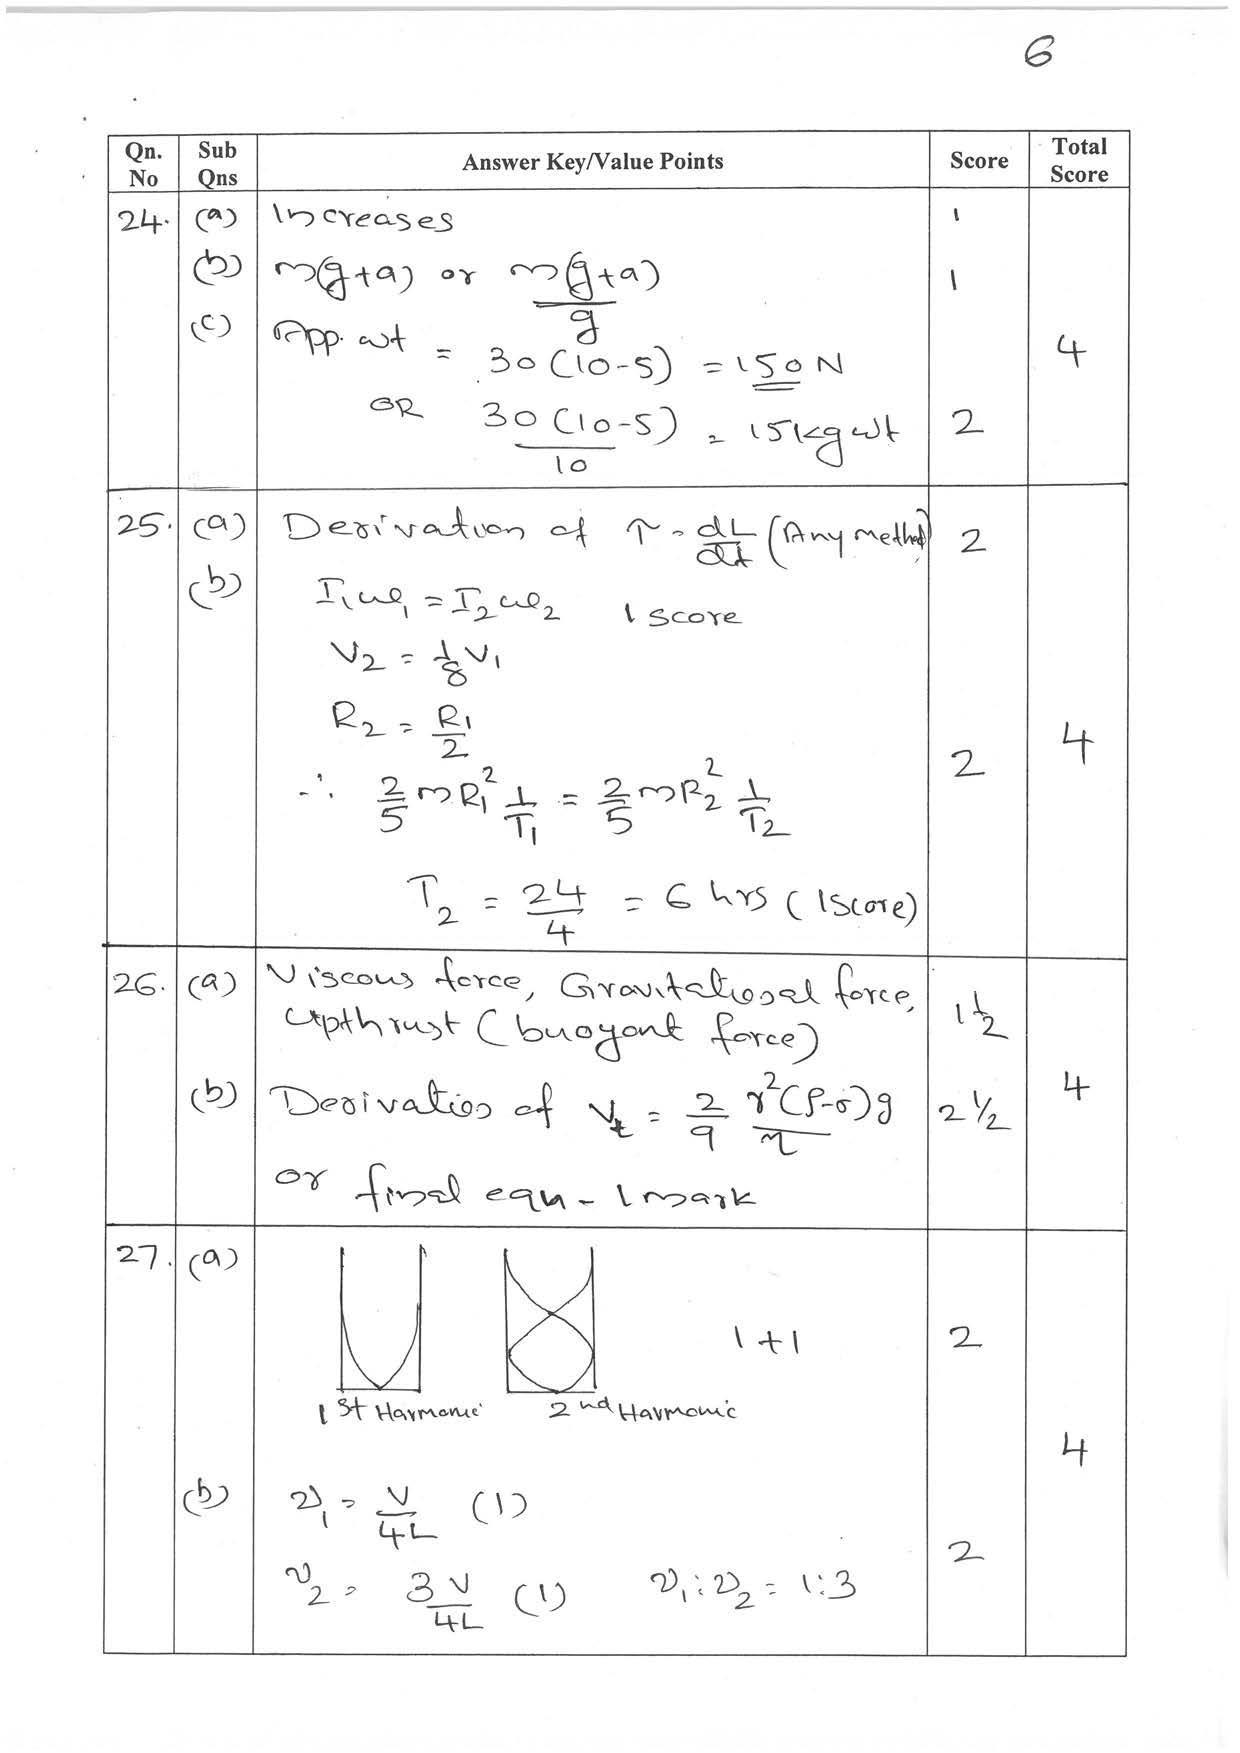 6
Qn. No | Sub Qns | Answer Key/Value Points | Score | Total Score
24. (a) Increases 1
(b) m(g+a) or m(g+a)/g 1
(c) App. wt = 30(10-5) = 150 N
OR 30(10-5)/10 = 15kg wt 2
4
25. (a) Derivation of τ = dL/dt (Any method) 2
(b) I₁ω₁ = I₂ω₂ 1 score
V₂ = 1/8 V₁
R₂ = R₁/2
∴ 2/5 mR₁² 1/T₁ = 2/5 mR₂² 1/T₂ 2
T₂ = 24/4 = 6 hrs (1 Score)
4
26. (a) Viscous force, Gravitational force,
upthrust (buoyant force) 1½
(b) Derivation of Vt = 2/9 r²(ρ-σ)g/η 2½
or final equn - 1 mark
4
27. (a) 1+1 2
1st Harmonic 2nd Harmonic
(b) ν₁ = V/4L (1)
ν₂ = 3V/4L (1) ν₁:ν₂ = 1:3 2
4